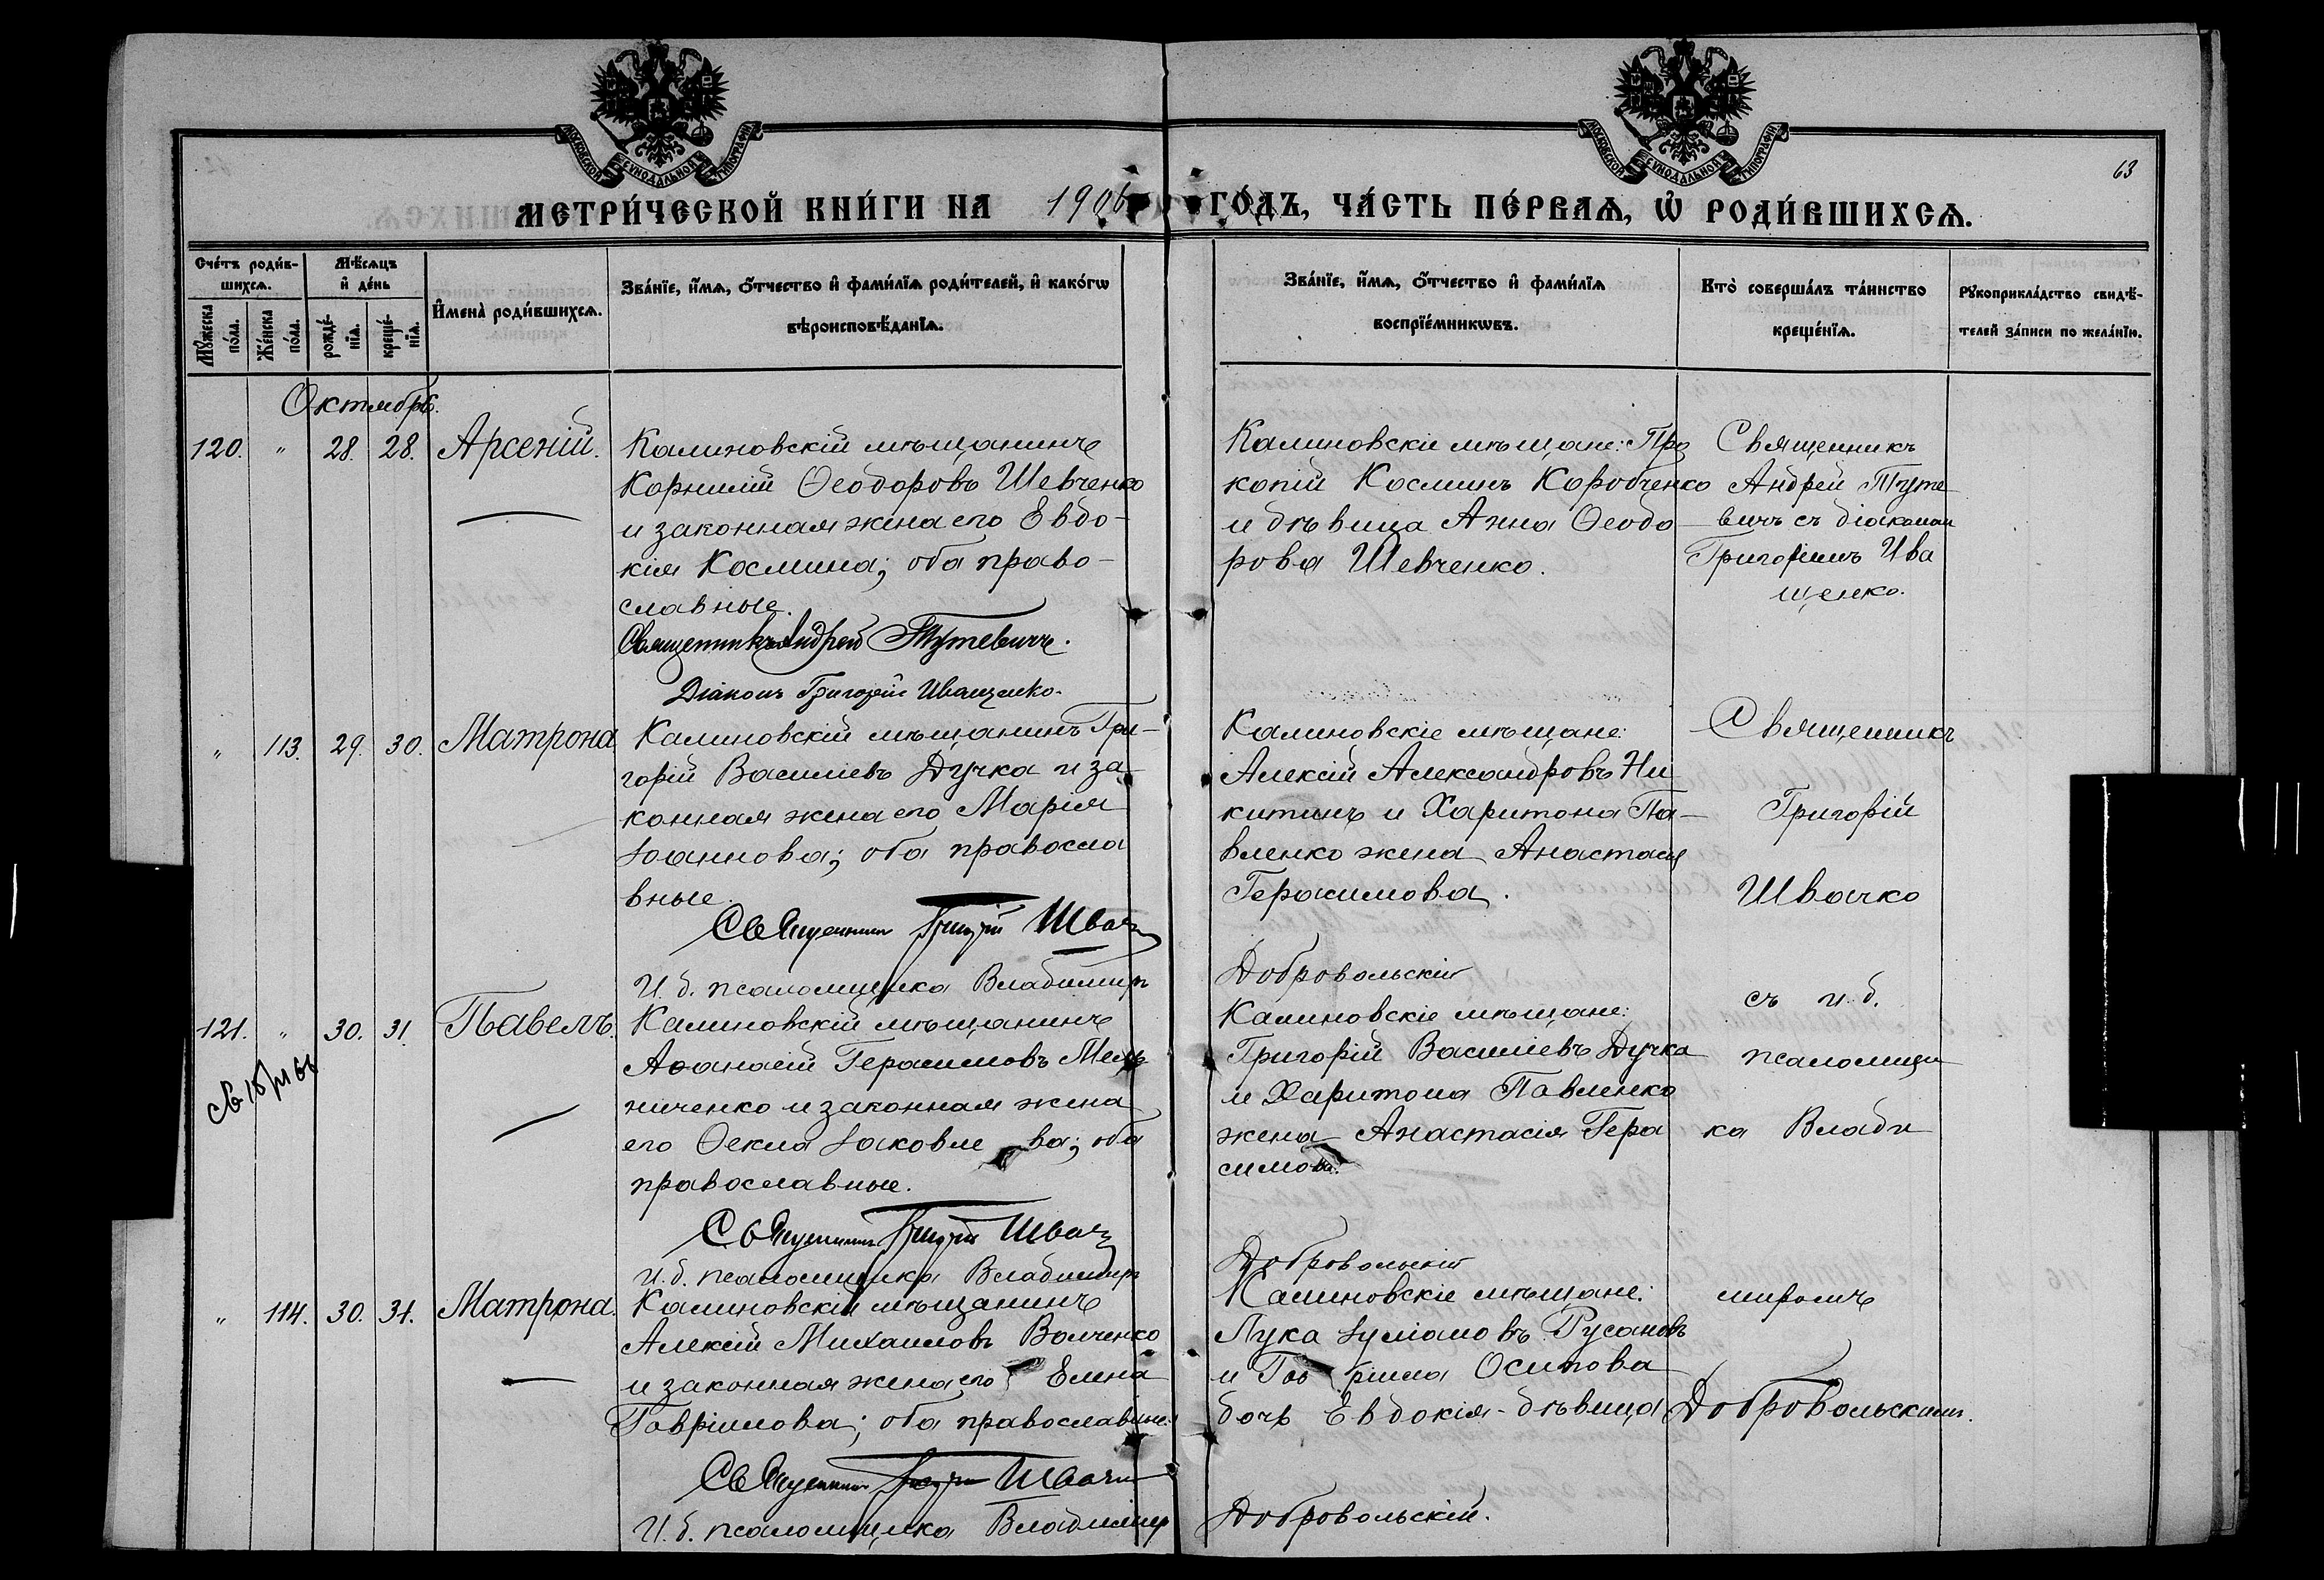 63
МЕТРИ́ЧЕСКОЙ КНИ́ГИ НА 1906 ГО́ДЪ, ЧА́СТЬ ПЕ́РВАѦ, Ѡ РОДИ́ВШИХСѦ.
Сче́тъ роди́в-
шихсѧ.
Мѣ́сѧцъ
и҆ де́нь
Мꙋ́жеска по́ла.
Же́нска по́ла.
рожде́-
нїѧ.
креще́-
нїѧ.
И҆мена̀ роди́вшихсѧ.
Зва́нїе, и҆́мѧ, ѻ҆́тчество и҆ фами́лїѧ роди́телей, и҆ како́гѡ
вѣроисповѣ́данїѧ.
Зва́нїе, и҆́мѧ, ѻ҆́тчество и҆ фами́лїѧ
воспрїе́мникѡвъ.
Кто̀ соверша́лъ та́инство
креще́нїѧ.
Рꙋкоприкла́дство свидѣ́-
телей за́писи по жела́нїю.
Октябрь.
120. " 28. 28. Арсеній.
Калиновскій мѣщанинъ
Корнилій Ѳеодоровъ Шевченко
и законная жена его Евдо-
кія Космина; оба право-
славные.
Священникъ Андрей Тутевичъ.
Діаконъ Григорій Иващенко.
Калиновскіе мѣщане: Про
копій Косминъ Коробченко
и дѣвица Анна Ѳеодо-
рова Шевченко.
Священникъ
Андрей Туте
вичъ съ діакономъ
Григоріемъ Ива
щенко.
" 113. 29. 30. Матрона
Калиновскій мѣщанинъ Гри-
горій Василіевъ Дучка и за
конная жена его Марія
Іоаннова; оба правосла
вные.
Священникъ Григорій Швачко
И. д. псаломщика Владиміръ Добровольскій
Калиновскіе мѣщане:
Алексій Александровъ Ни
китинъ и Харитона Па-
вленко жена Анастасія
Герасимова.
Священникъ
Григорій
Швачко
съ и. д.
псаломщи
ка Влади
міромъ
Добровольскимъ.
121. " 30. 31. Павелъ.
Калиновскій мѣщанинъ
Аѳанасій Герасимовъ Мель
ниченко и законная жена
его Ѳекла Іаковлева; оба
православные.
Священникъ Григорій Швачко
И. д. псаломщика Владиміръ Добровольскій
Калиновскіе мѣщане:
Григорій Василіевъ Дучка
и Харитона Павленко
жена Анастасія Гера
симова.
" 114. 30. 31. Матрона.
Калиновскій мѣщанинъ
Алексій Михаиловъ Волченко
и законная жена его Елена
Гавріилова; оба православные.
Священникъ Григорій Швачко
И. д. псаломщика Владиміръ Добровольскій.
Калиновскіе мѣщане:
Лука Іуліановъ Русановъ
и Гавріила Осипова
дочь Евдокія - дѣвица